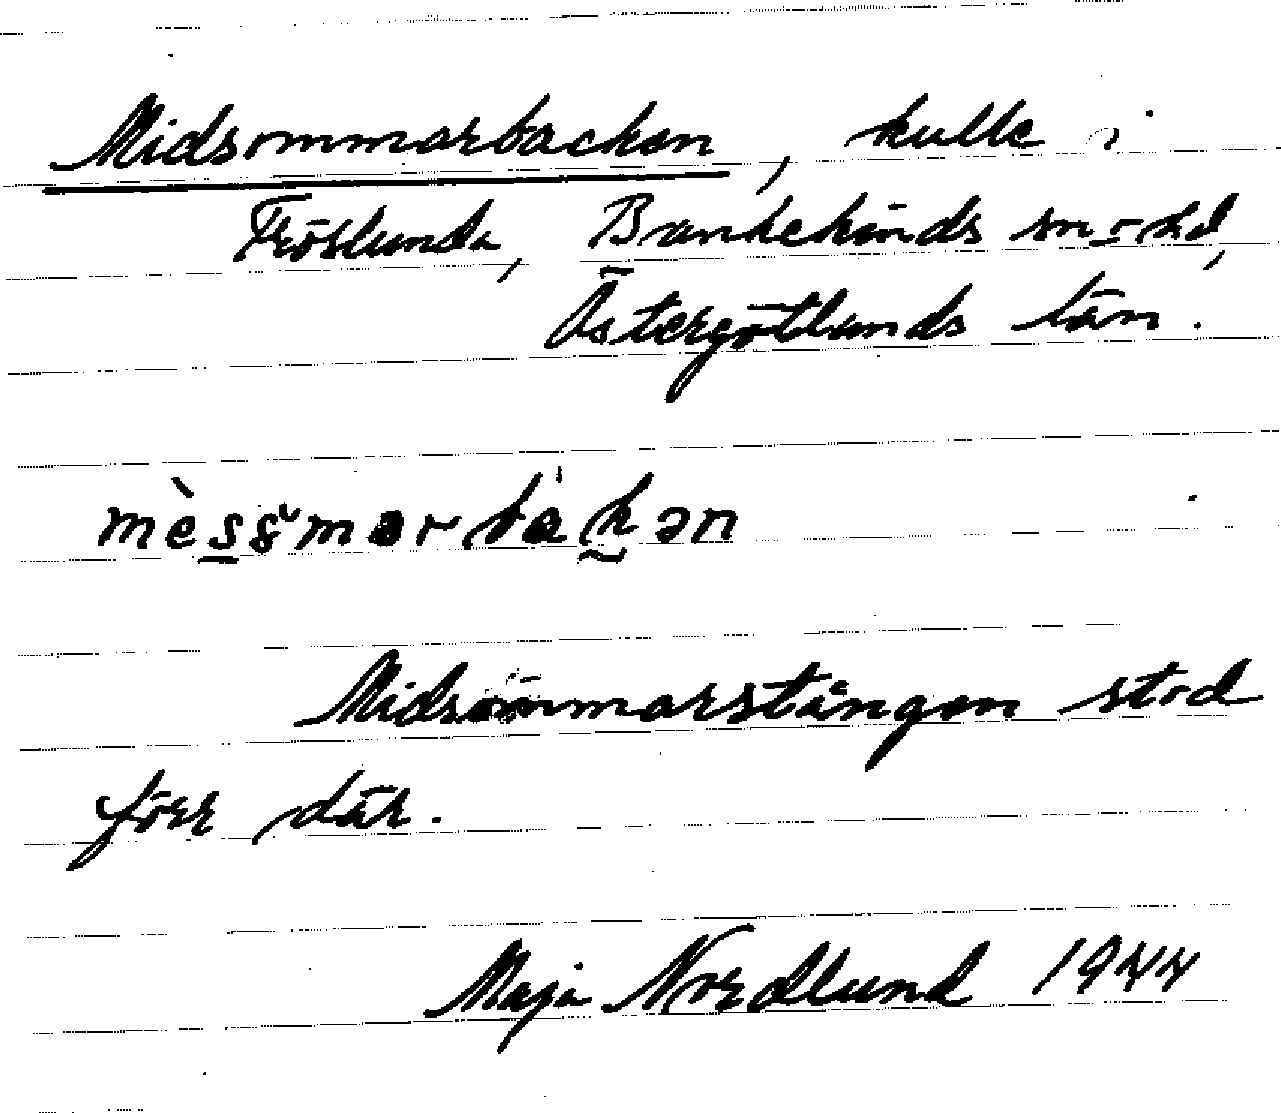 Midsommarbacken, kulle i
Fröslunda, Bankekinds sn o hd,
Östergötlands län.
Midsommarstången stod
förr där.
Maja Nordlund 1944